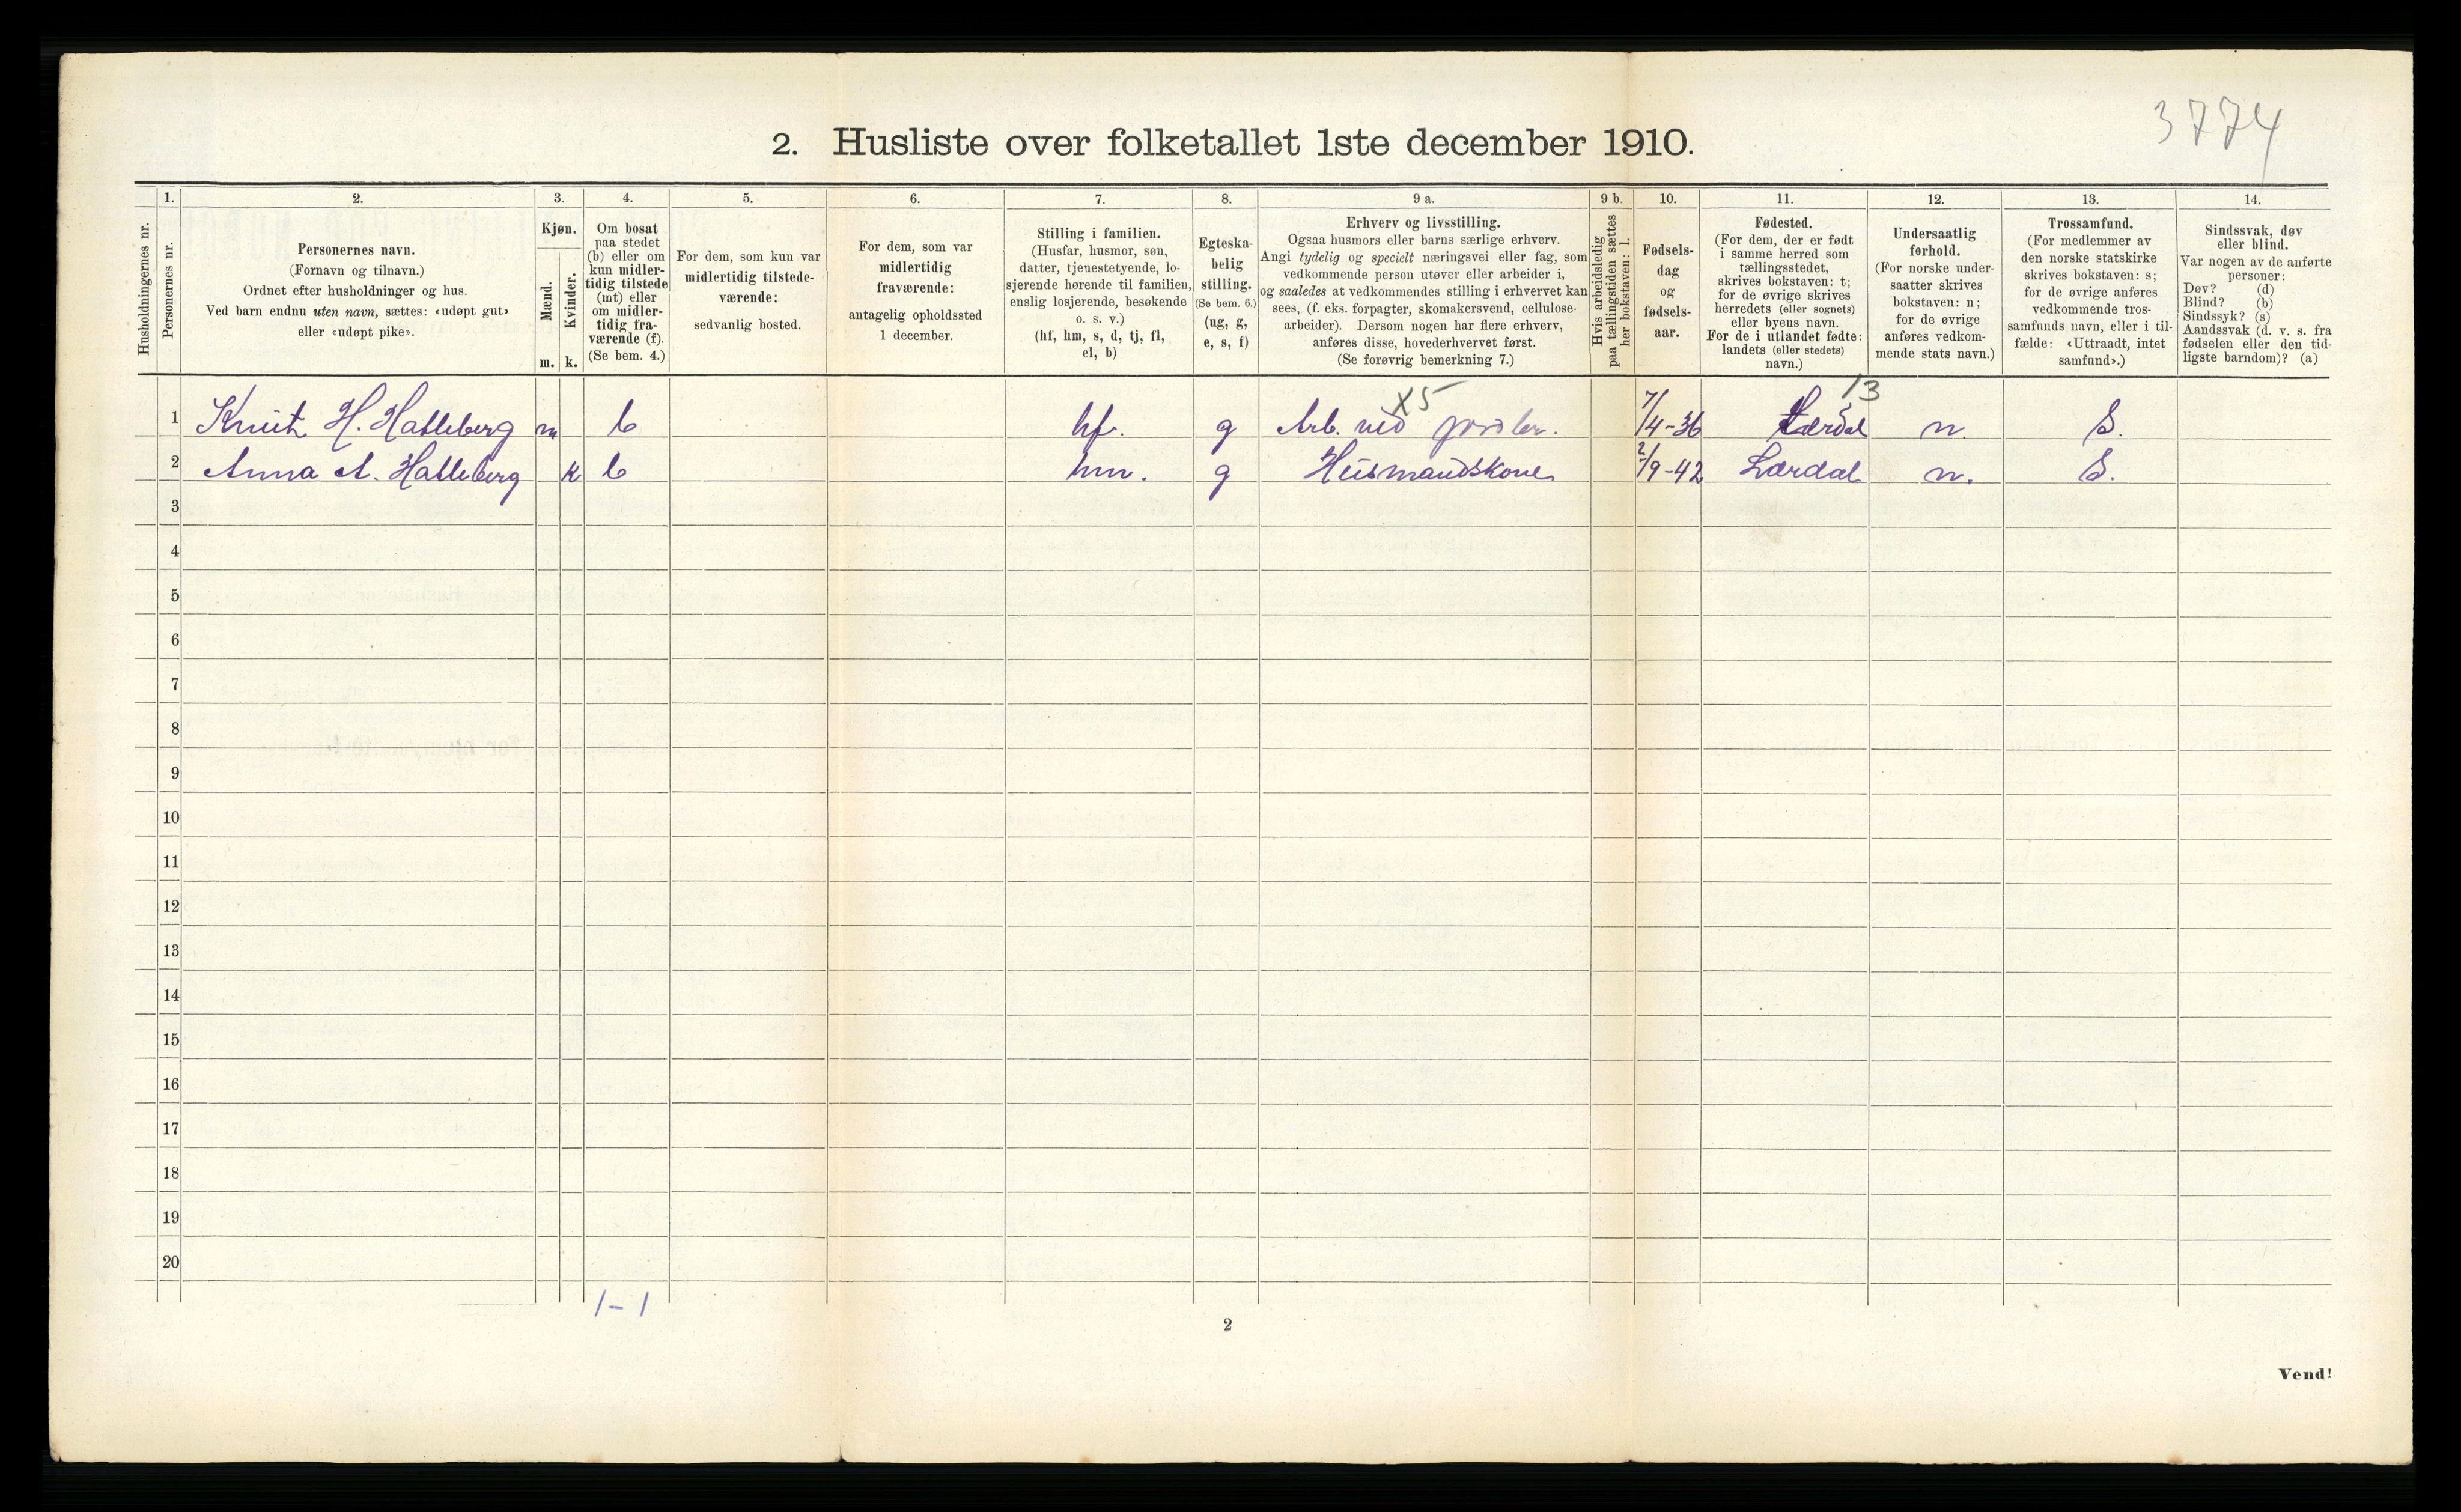 3774
2. Husliste over folketallet 1ste december 1910.
Husholdningernes nr.
1.
Personernes nr.
2.
Personernes navn.
(Fornavn og tilnavn.)
Ordnet efter husholdninger og hus.
Ved barn endnu uten navn, sættes: «udøpt gut»
eller «udøpt pike».
3.
Kjøn.
Mænd.
Kvinder.
m. k.
4.
Om bosat
paa stedet
(b) eller om
kun midler-
tidig tilstede
(mt) eller
om midler-
tidig fra-
værende (f).
(Se bem. 4.)
5.
For dem, som kun var
midlertidig tilstede-
værende:
sedvanlig bosted.
6.
For dem, som var
midlertidig
fraværende:
antagelig opholdssted
1 december.
7.
Stilling i familien.
(Husfar, husmor, søn,
datter, tjenestetyende, lo-
sjerende hørende til familien,
enslig losjerende, besøkende
o. s. v.)
(hf, hm, s, d, tj, fl,
el, b)
8.
Egteska-
belig
stilling.
(Se bem. 6.)
(ug, g,
e, s, f)
9 a.
Erhverv og livsstilling.
Ogsaa husmors eller barns særlige erhverv.
Angi tydelig og specielt næringsvei eller fag, som
vedkommende person utøver eller arbeider i,
og saaledes at vedkommendes stilling i erhvervet kan
sees, (f. eks. forpagter, skomakersvend, cellulose-
arbeider). Dersom nogen har flere erhverv,
anføres disse, hovederhvervet først.
(Se forøvrig bemerkning 7.)
9 b.
Hvis arbeidsledig
paa tællingstiden sættes
her bokstaven: l.
10.
Fødsels-
dag
og
fødsels-
aar.
11.
Fødested.
(For dem, der er født
i samme herred som
tællingsstedet,
skrives bokstaven: t;
for de øvrige skrives
herredets (eller sognets)
eller byens navn.
For de i utlandet fødte:
landets (eller stedets)
navn.)
12.
Undersaatlig
forhold.
(For norske under-
saatter skrives
bokstaven: n;
for de øvrige
anføres vedkom-
mende stats navn.)
13.
Trossamfund.
(For medlemmer av
den norske statskirke
skrives bokstaven: s;
for de øvrige anføres
vedkommende tros-
samfunds navn, eller i til-
fælde: «Uttraadt, intet
samfund».)
14.
Sindssvak, døv
eller blind.
Var nogen av de anførte
personer:
Døv? (d)
Blind? (b)
Sindssyk? (s)
Aandssvak (d. v. s. fra
fødselen eller den tid-
ligste barndom)? (a)
X5 13
1 Knut H. Hatleberg m b hf. g Arb. ved 7/4-36 Lærdal n. S.
2 Anna A. Hatleberg k b hm. g Husmandskone 2/9-42 Lærdal n. S.
3
4
5
6
7
8
9
10
11
12
13
14
15
16
17
18
19
20
1-1
2
Vend!